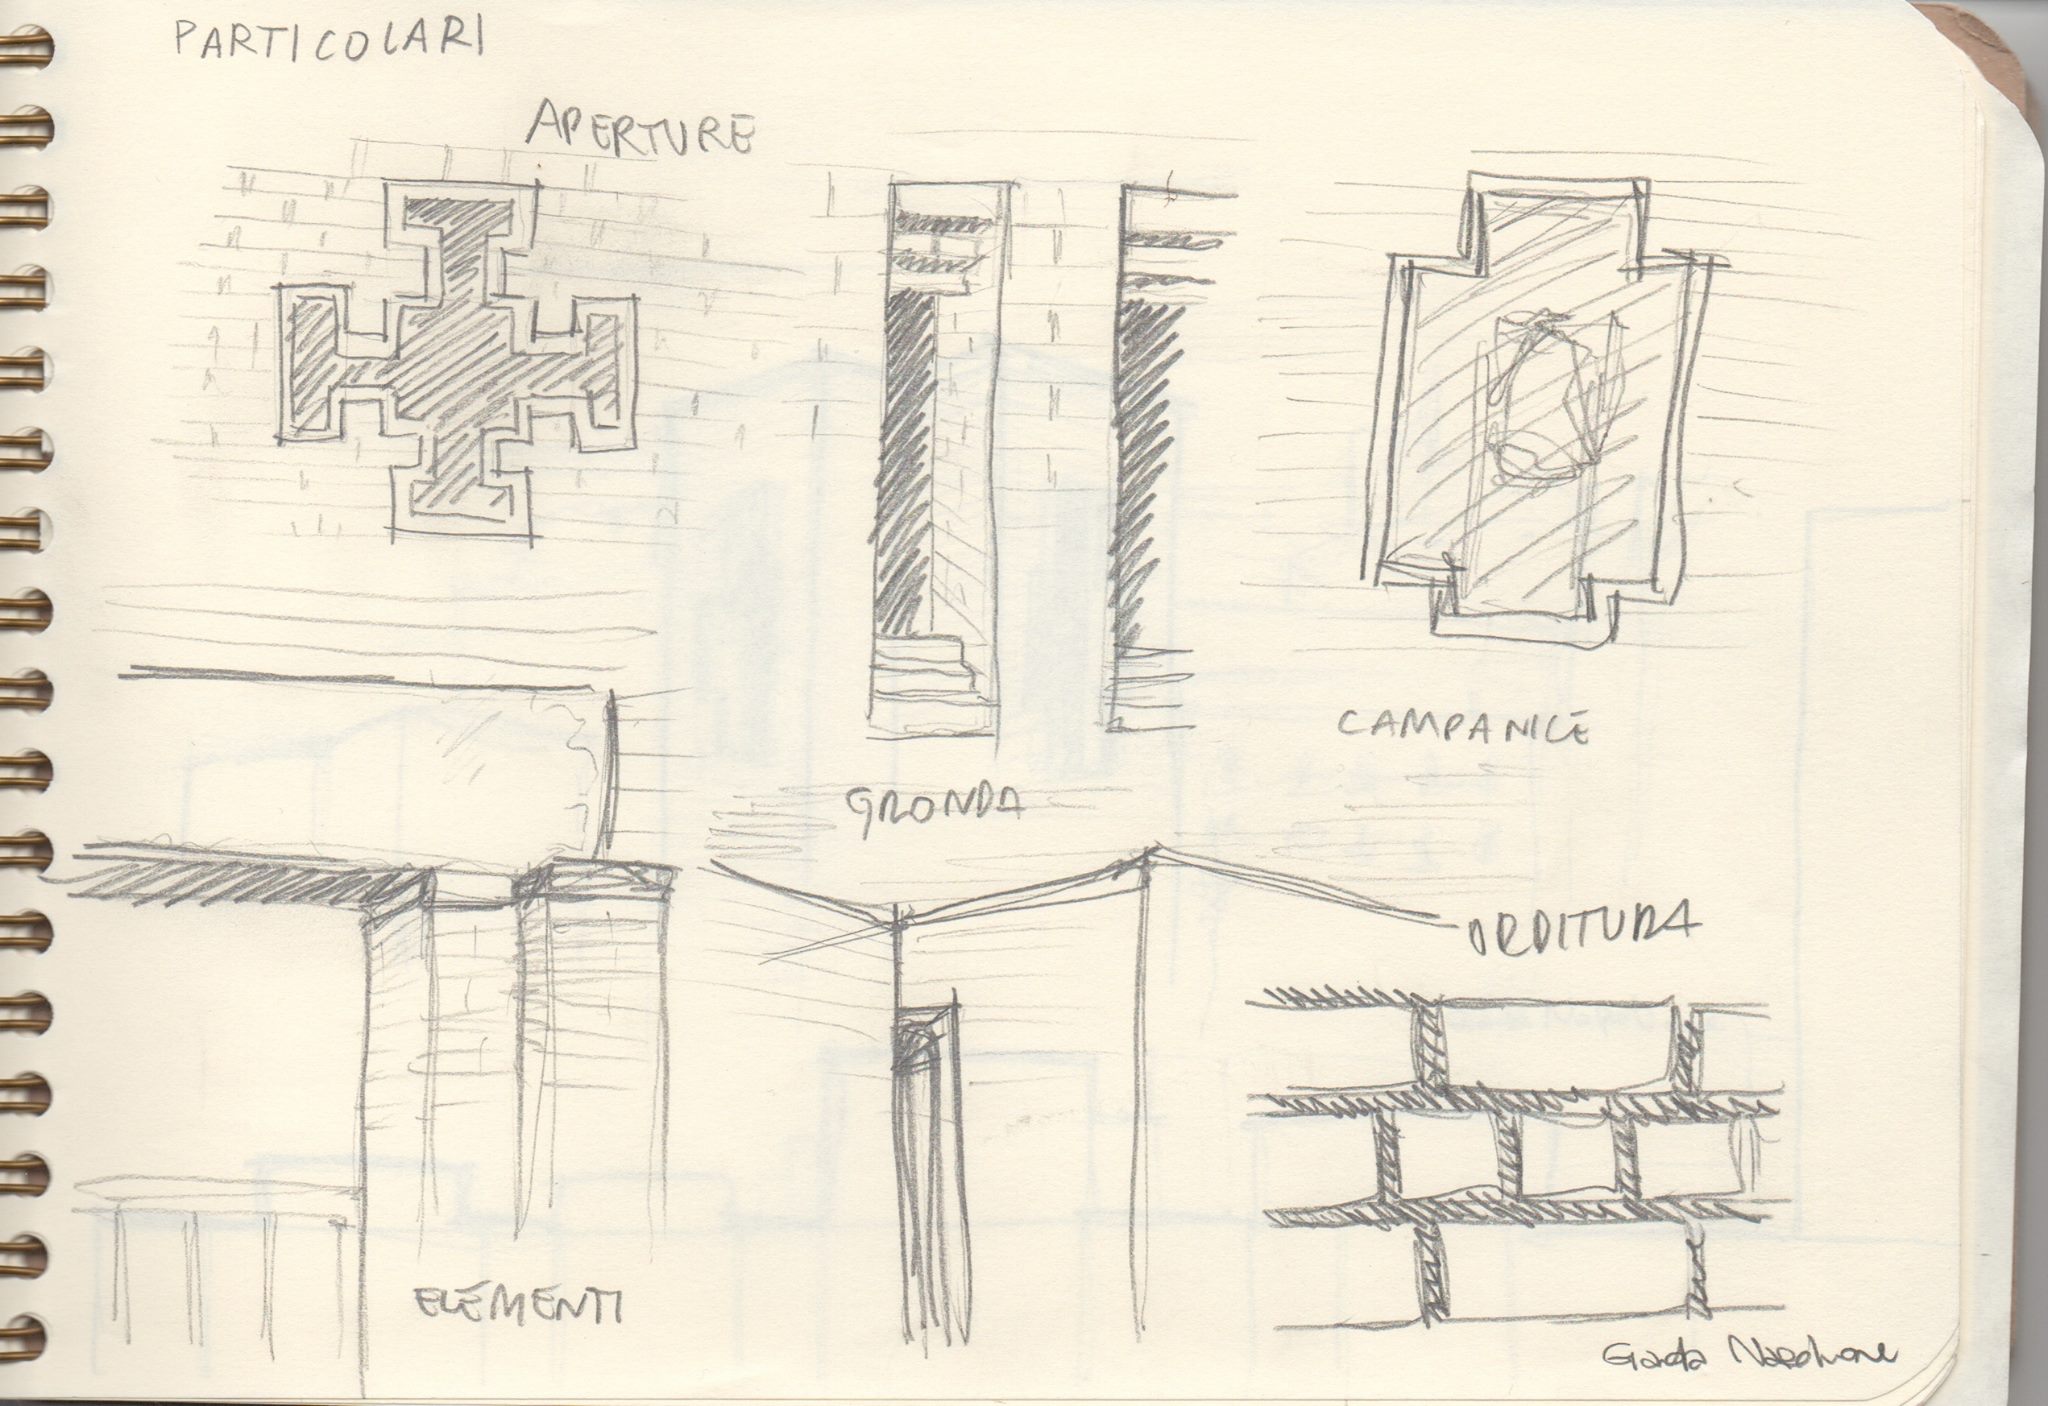 PARTICOLARI
APERTURE
CAMPANILE
GRONDA
ORDITURA
ELEMENTI